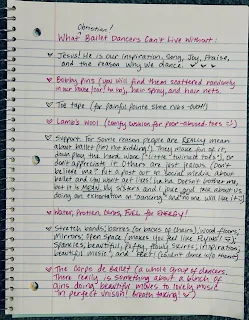 Christian!
What Ballet Dancers Can't Live Without:
♥ Jesus! He is our inspiration, Song, Joy, Praise,
and the reason why we dance. ✓ ✓ ✓
♥ Bobby pins (you will find them scattered randomly
in our house/car! to boy), hair spray, and hair nets.
♥ Toe tape (for painful pointe shoe rubs-ouch!)
♥ Lamb's Wool (comfy cushion for poor-abused-toes
♥ Support. For some reason people are REALLY mean
about ballet (I'm not kidding!) They make fun of it,
down play the hard work ("little" "twirled" "toe's"), or
don't appreciate it. Others are just jealous. (Don't
believe me? Put a post out to Social Media about
ballet and you won't get likes! haha. Doesn't bother me,
but it is MEAN. My sisters and I joke and talk about us
doing an exhortation on "dancing" and no one will like it
♥ Water, Protein, Carbs, FUEL for ENERGY!
♥ Stretch bands, barres (or backs of chairs), Wood floors,
Mirrors, Open Space (makes you feel like FLYING!
Sparkles, beautiful, Puffy, towls, Skirts, inspirations,
beautiful music, and Feet! (couldn't dance w/o them!)
♥ The Corps de Ballet (a whole group of dancers.
There really is something about a bunch of
girls doing beautiful moves to lovely music
"in perfect unison! Breath taking!